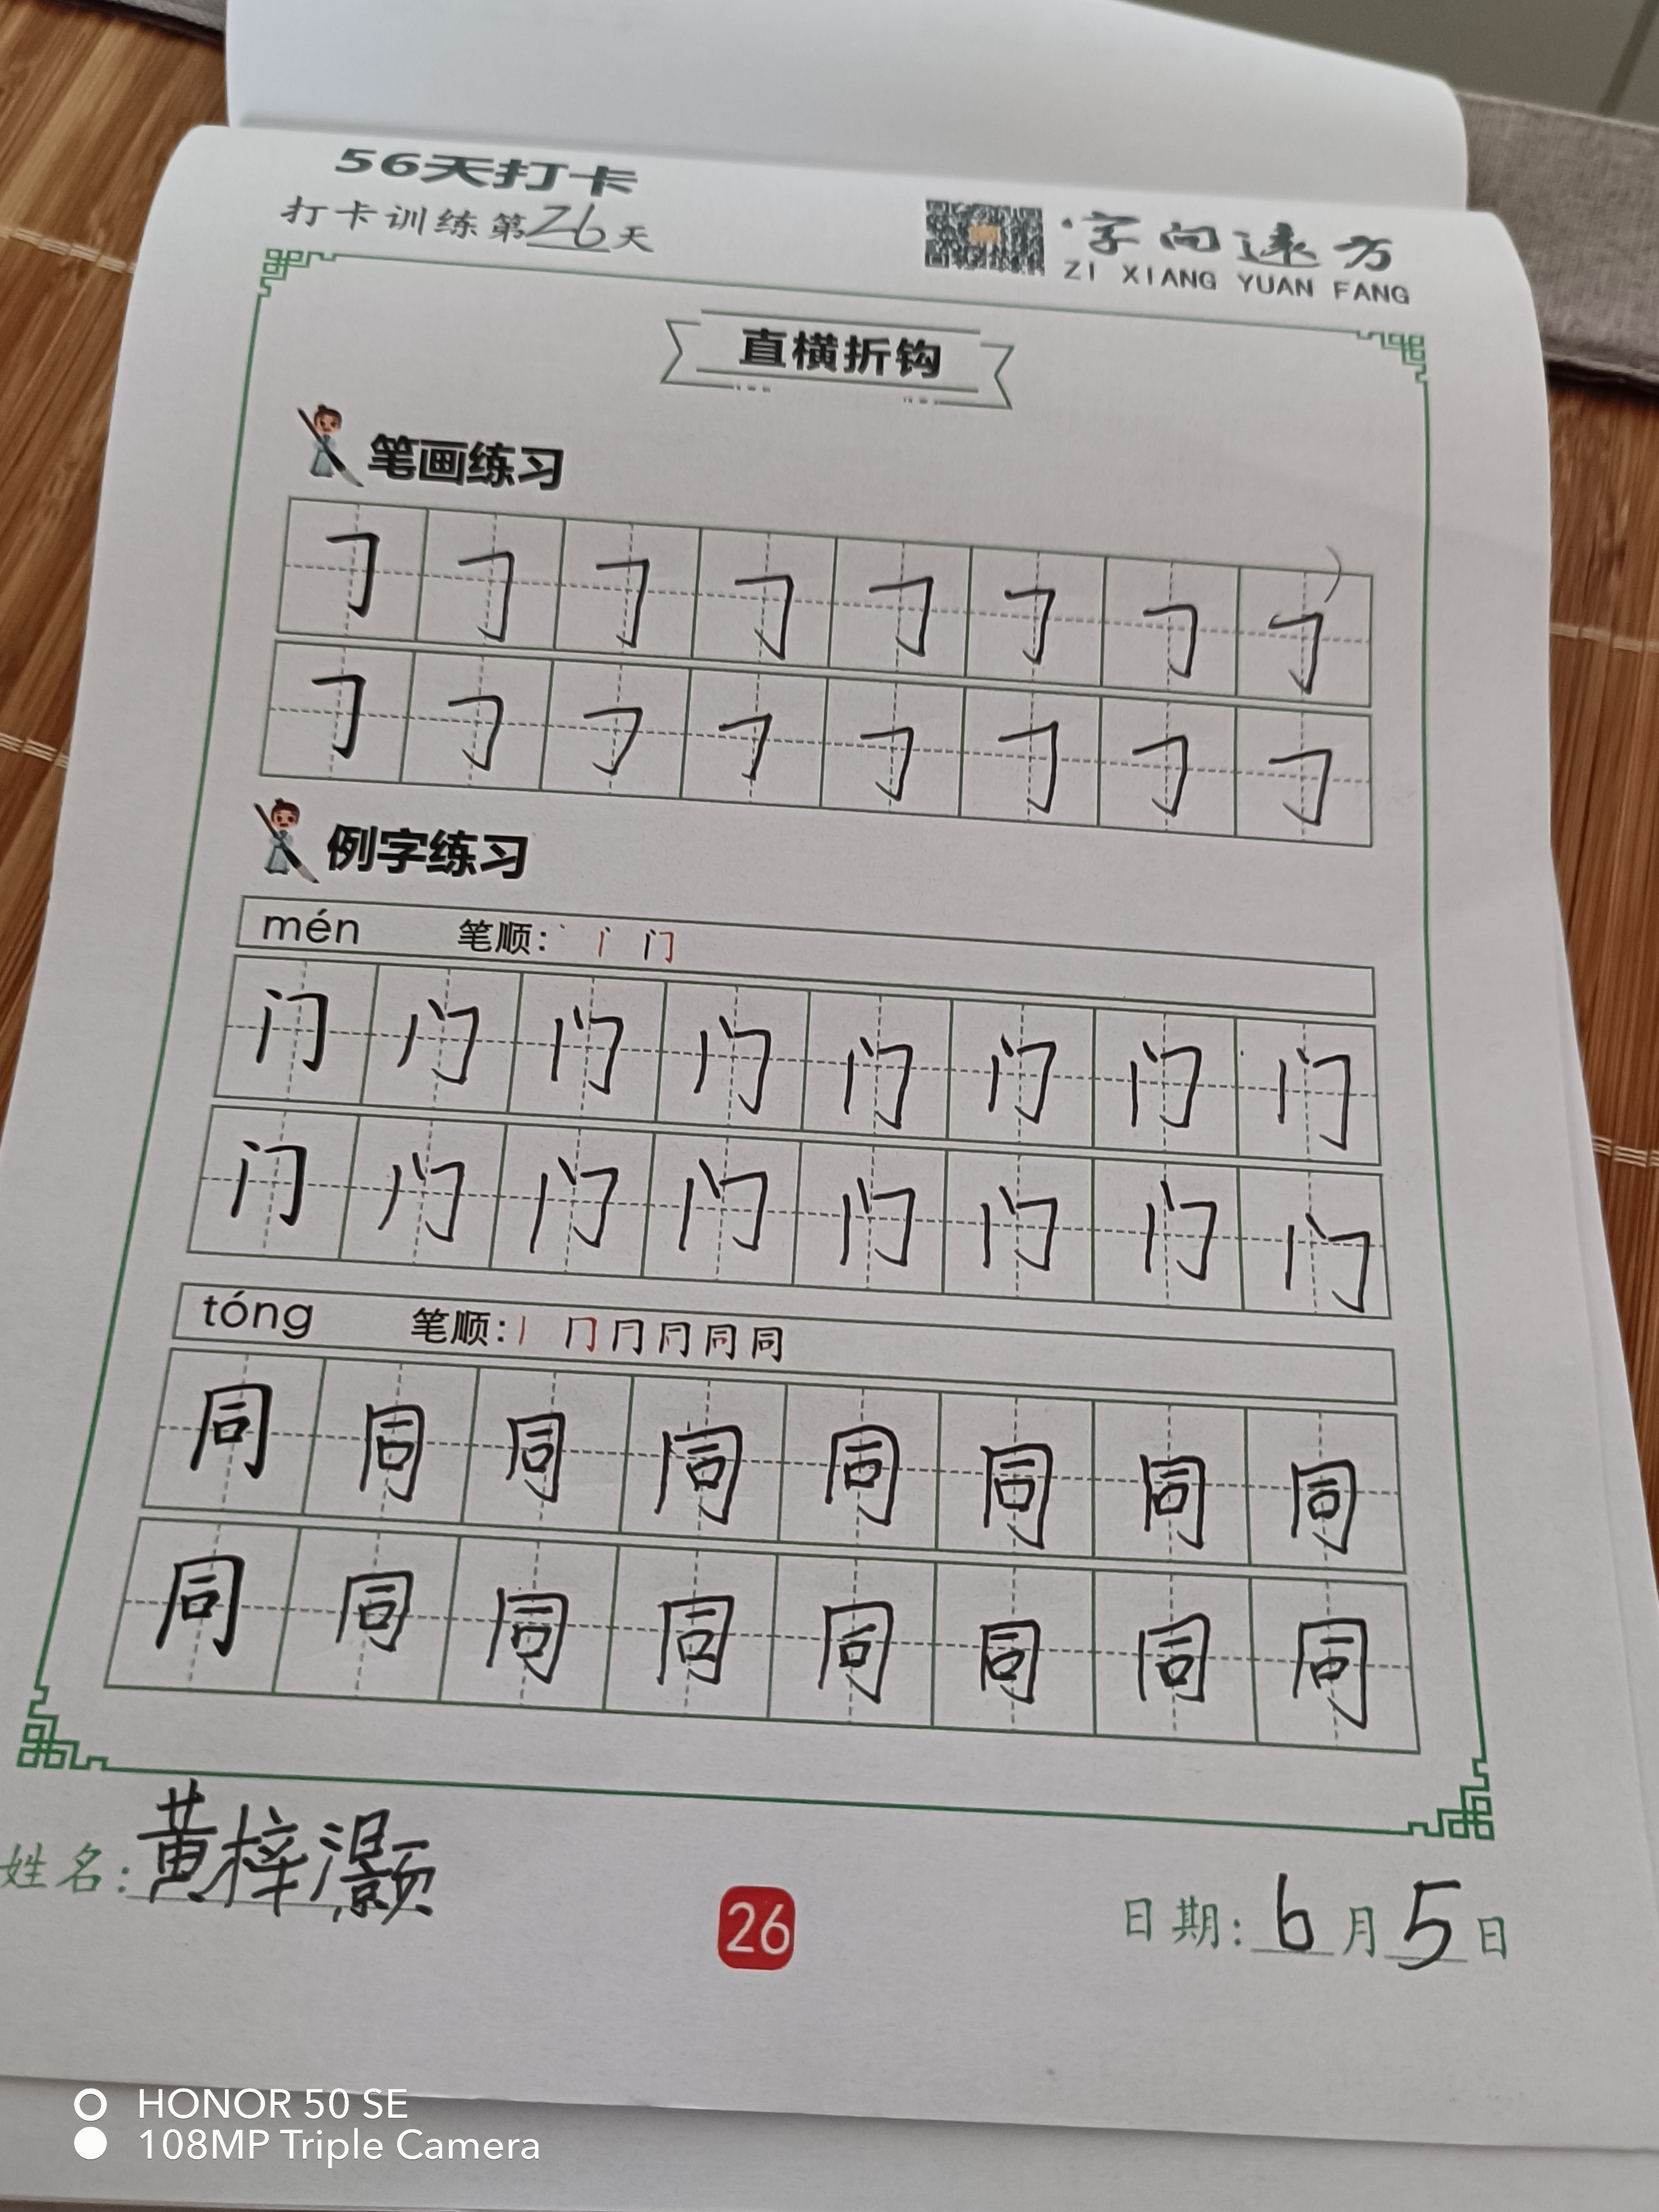 56天打卡
打卡训练第26天
字向远方
ZI XIANG YUAN FANG
直横折钩
笔画练习
𠃌 𠃌 𠃌 𠃌 𠃌 𠃌 𠃌 𠃌
𠃌 𠃌 𠃌 𠃌 𠃌 𠃌 𠃌 𠃌
例字练习
mén 笔顺: 丶 门
门 门 门 门 门 门 门 门
门 门 门 门 门 门 门 门
tóng 笔顺: 丨 冂 同 同
同 同 同 同 同 同 同 同
同 同 同 同 同 同 同 同
姓名: 黄梓灏
26
日期: 6月5日
HONOR 50 SE
108MP Triple Camera